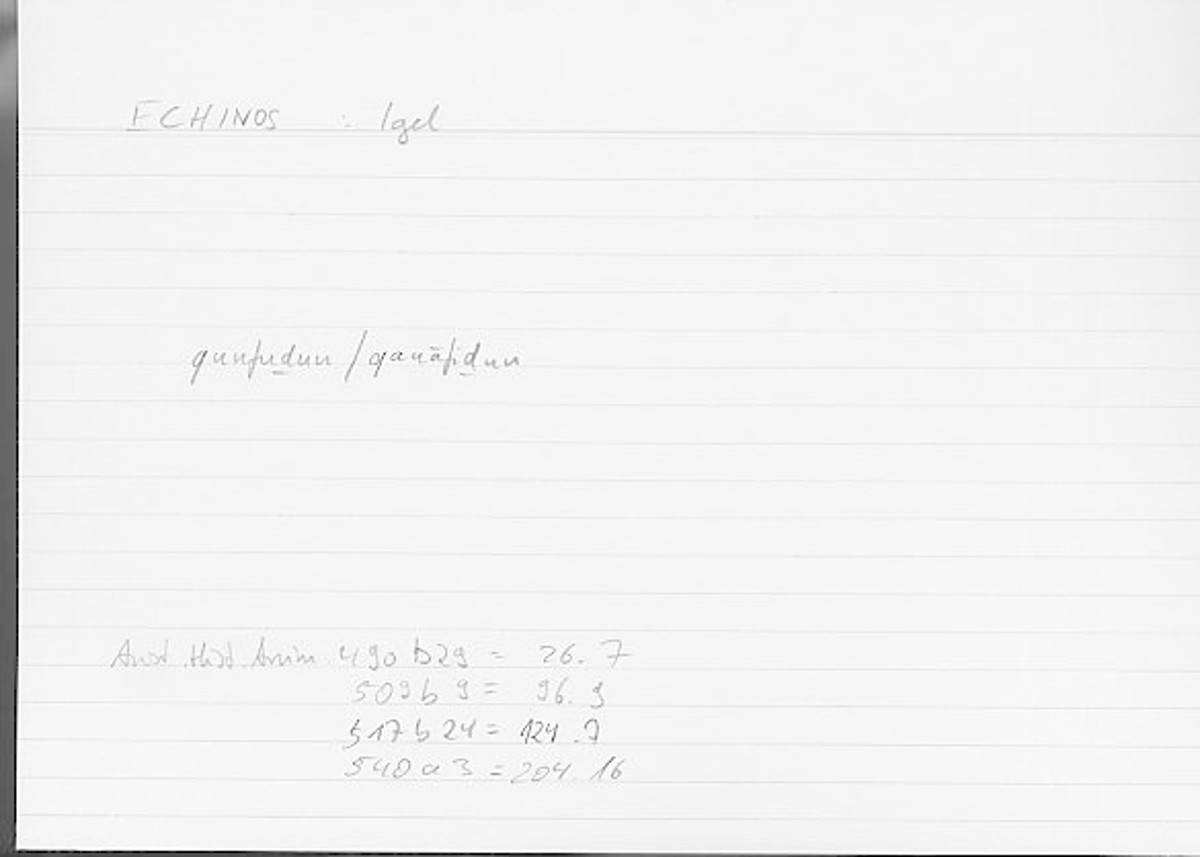 ECHINOS : Igel
qunfuḏun / qanāfiḏun
Arist. Hist. Anim. 490 b29 = 26. 7
509b 9 = 96. 9
517 b 24 = 124. 7
540 a 3 = 204. 16